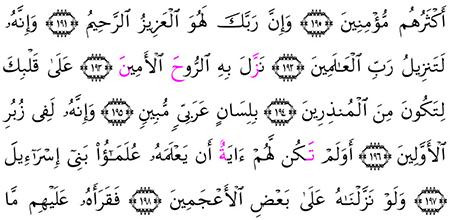 أَكْثَرُهُم مُّؤْمِنِينَ ﴿١٩٠﴾ وَإِنَّ رَبَّكَ لَهُوَ ٱلْعَزِيزُ ٱلرَّحِيمُ ﴿١٩١﴾ وَإِنَّهُۥ
لَتَنزِيلُ رَبِّ ٱلْعَـٰلَمِينَ ﴿١٩٢﴾ نَزَّلَ بِهِ ٱلرُّوحَ ٱلْأَمِينَ ﴿١٩٣﴾ عَلَىٰ قَلْبِكَ
لِتَكُونَ مِنَ ٱلْمُنذِرِينَ ﴿١٩٤﴾ بِلِسَانٍ عَرَبِىٍّ مُّبِينٍ ﴿١٩٥﴾ وَإِنَّهُۥ لَفِى زُبُرِ
ٱلْأَوَّلِينَ ﴿١٩٦﴾ أَوَلَمْ تَكُن لَّهُمْ ءَايَةٌ أَن يَعْلَمَهُۥ عُلَمَـٰٓؤُا۟ بَنِىٓ إِسْرَٰٓءِيلَ
﴿١٩٧﴾ وَلَوْ نَزَّلْنَـٰهُ عَلَىٰ بَعْضِ ٱلْأَعْجَمِينَ ﴿١٩٨﴾ فَقَرَأَهُۥ عَلَيْهِم مَّا